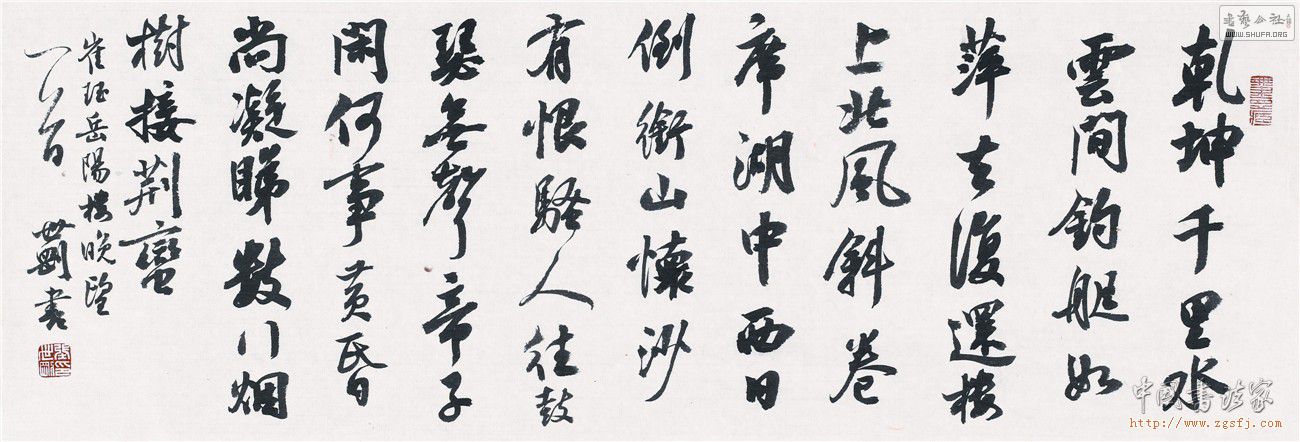 乾坤千里水
雲間釣艇如
萍去復還樓
上北風斜卷
席湖中西日
倒銜山懷沙
有恨騷人往鼓
瑟無聲帝子
閑何事黄昏
尚凝睇數行烟
樹接荆蠻
崔珏岳陽樓晚望
一首 世剛書
書藝公社
WWW.SHUFA.ORG
中国书法家
http://www.zgsfj.com